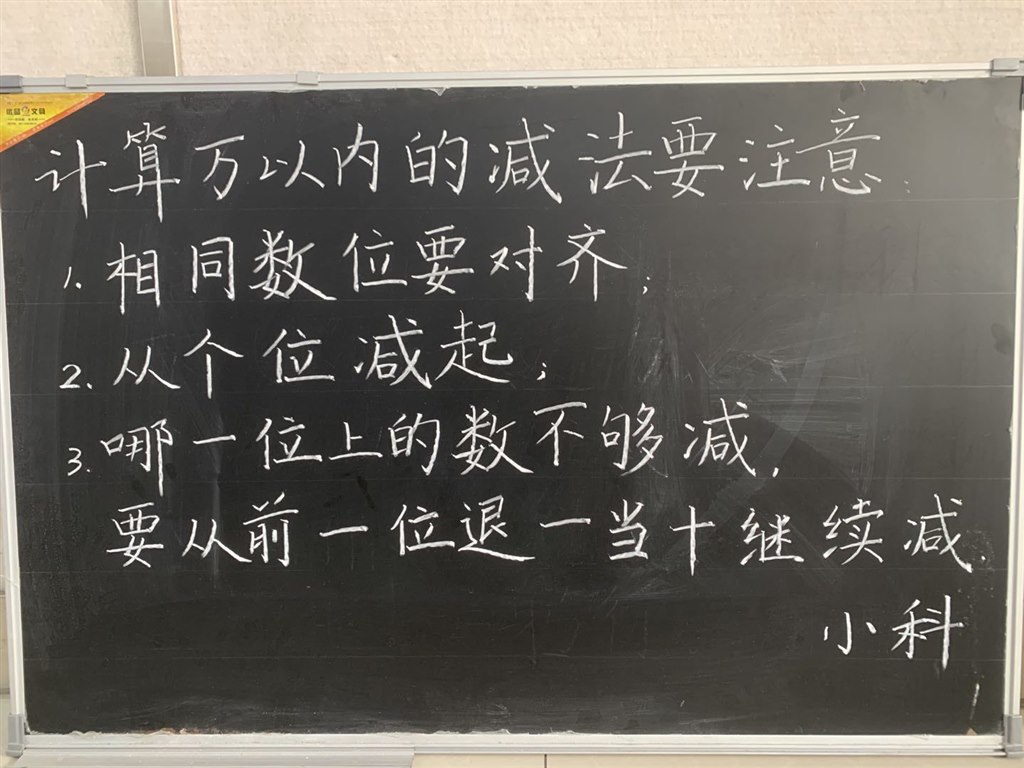 计算万以内的减法要注意:
1.相同数位要对齐;
2.从个位减起;
3.哪一位上的数不够减,
要从前一位退一当十继续减.
小科